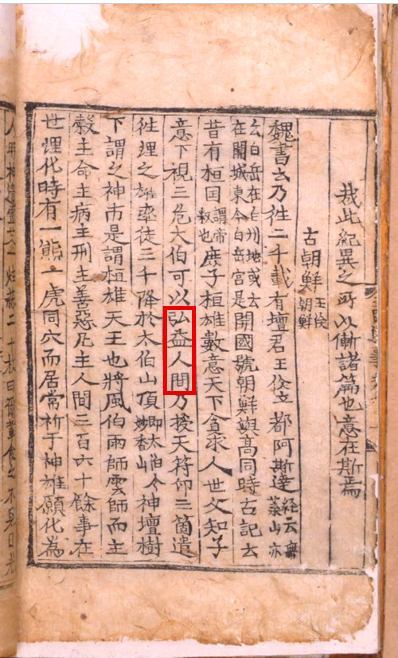 哉此紀異之所以慚諸篇也意在斯焉
古朝鮮 王倹朝鮮
魏書云乃徃二千載有壇君王倹立都阿斯達 經云無葉山亦
云白岳在白州地或云在開城東今白岳宮是 開國號朝鮮與高同時古記云
昔有桓国 謂帝釋也 庶子桓雄數意天下貪求人世父知子
意下視三危太伯可以弘益人間乃授天符印三箇遣
徃理之雄率徒三千降於太伯山頂 即太伯今妙香山 神壇樹
下謂之神市是謂桓雄天王也將風伯雨師雲師而主
糓主命主病主刑主善惡凡主人間三百六十餘事在
世理化時有一熊一虎同穴而居常祈于神雄願化為